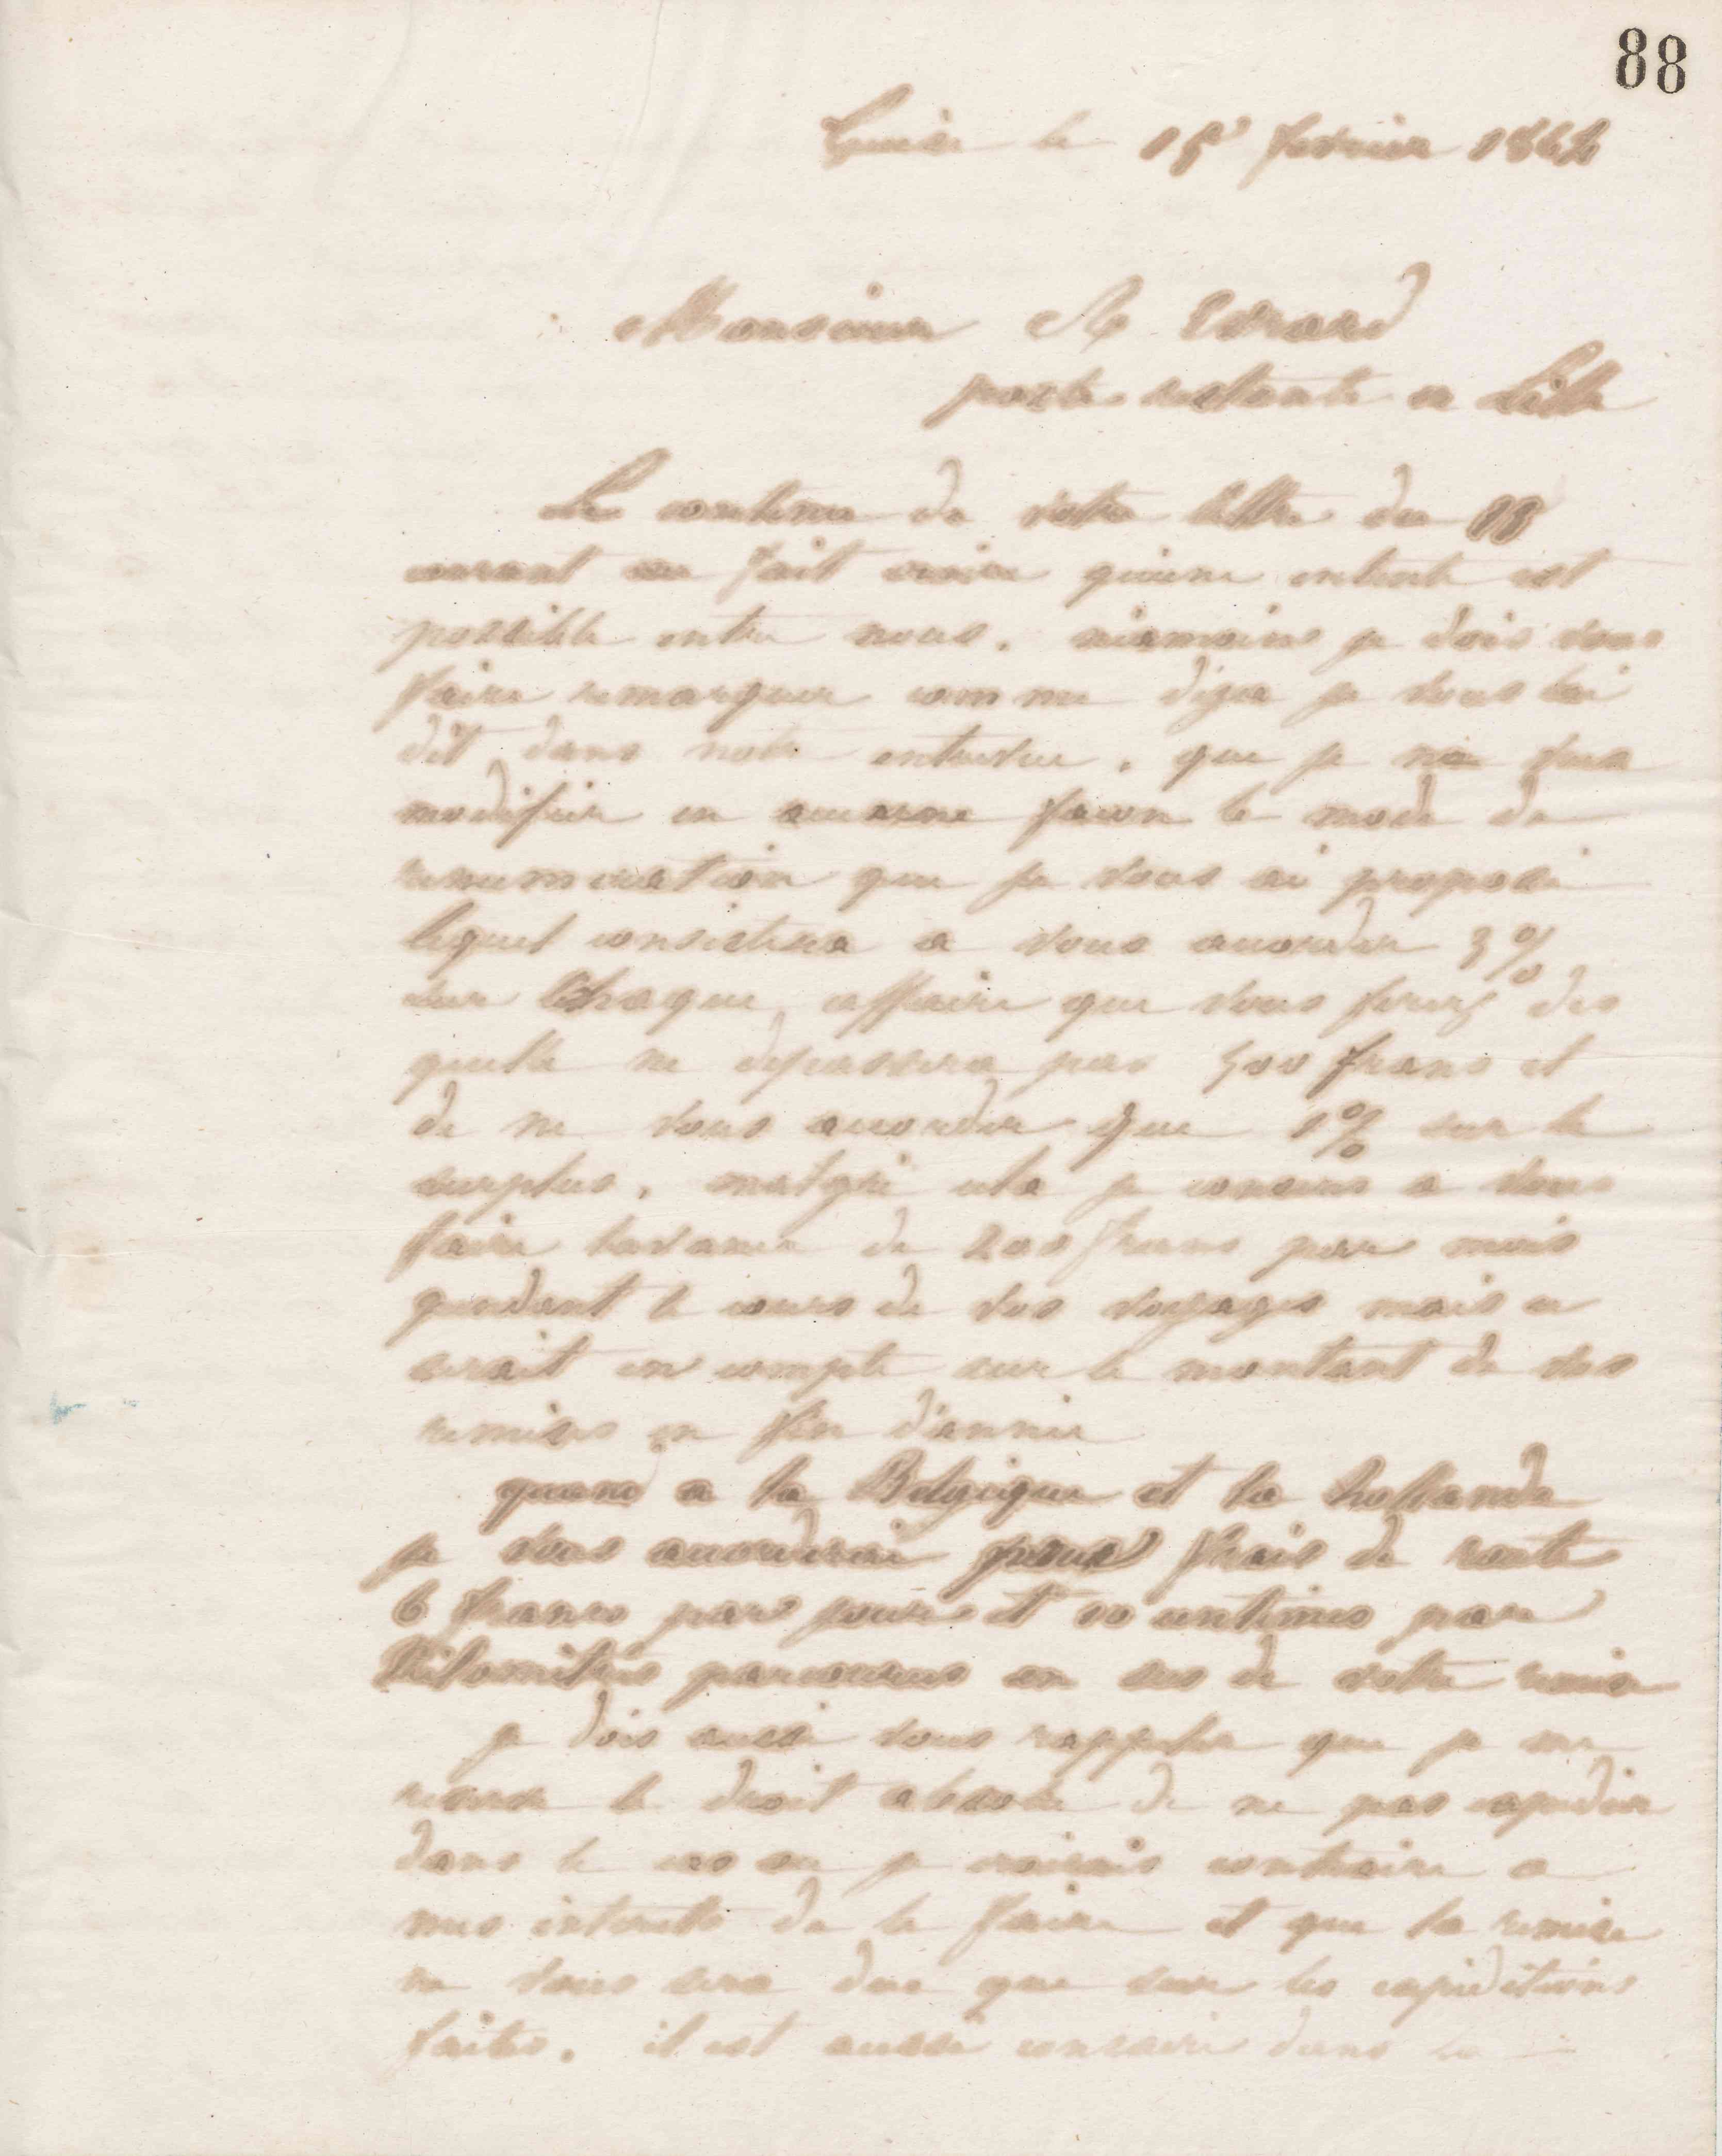 88
Guise le 15 fevrier 1862
Monsieur A Evrard
poste restante a Lille
Le contenu de votre lettre du 11
courant me fait croire qu'une entente est
possible entre nous. néamoins je dois vous
faire remarquer comme déja je vous lai
dit dans notre entrevue. que je ne veux
modifier en aucune facon le mode de
renumération que je vous ai proposé
lequel consistera a vous accorder 3%
sur Chaque affaire que vous ferez dès
quelle ne depassera pas 500 francs et
de ne vous accorder que 1% sur le
surplus. malgré cela je consens a vous
faire lavance de 200 francs par mois
pendant le cours de vos voyages mais ce
serait en compte sur le montant de vos
remises en fin d'année
quand a la Belgique et la hollande
je vous accorderai pour frais de route
6 francs par jours et 10 centimes par
Kilomètres parcourus en sus de votre remise
je dois aussi vous rappeler que je me
reserve le droit absolu de ne pas expedier
dans le cas ou je croirais contraire a
mes interets de le faire et que la remise
ne vous sera due que sur les expéditions
faites. il est aussi dans la